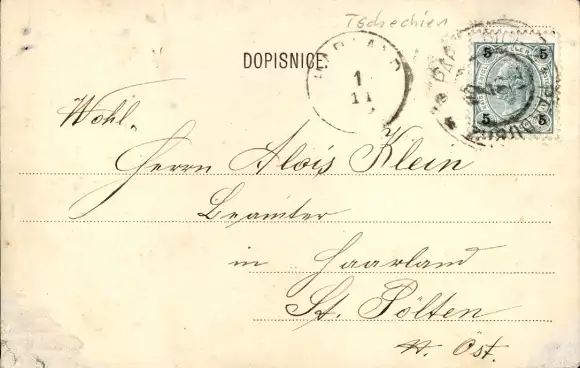 Tschechien
DOPISNICE.
1
11
5 5
5 5
Wohl.
Herrn Alois Klein
Beamter
in Haarland
St. Pölten
N. Öst.